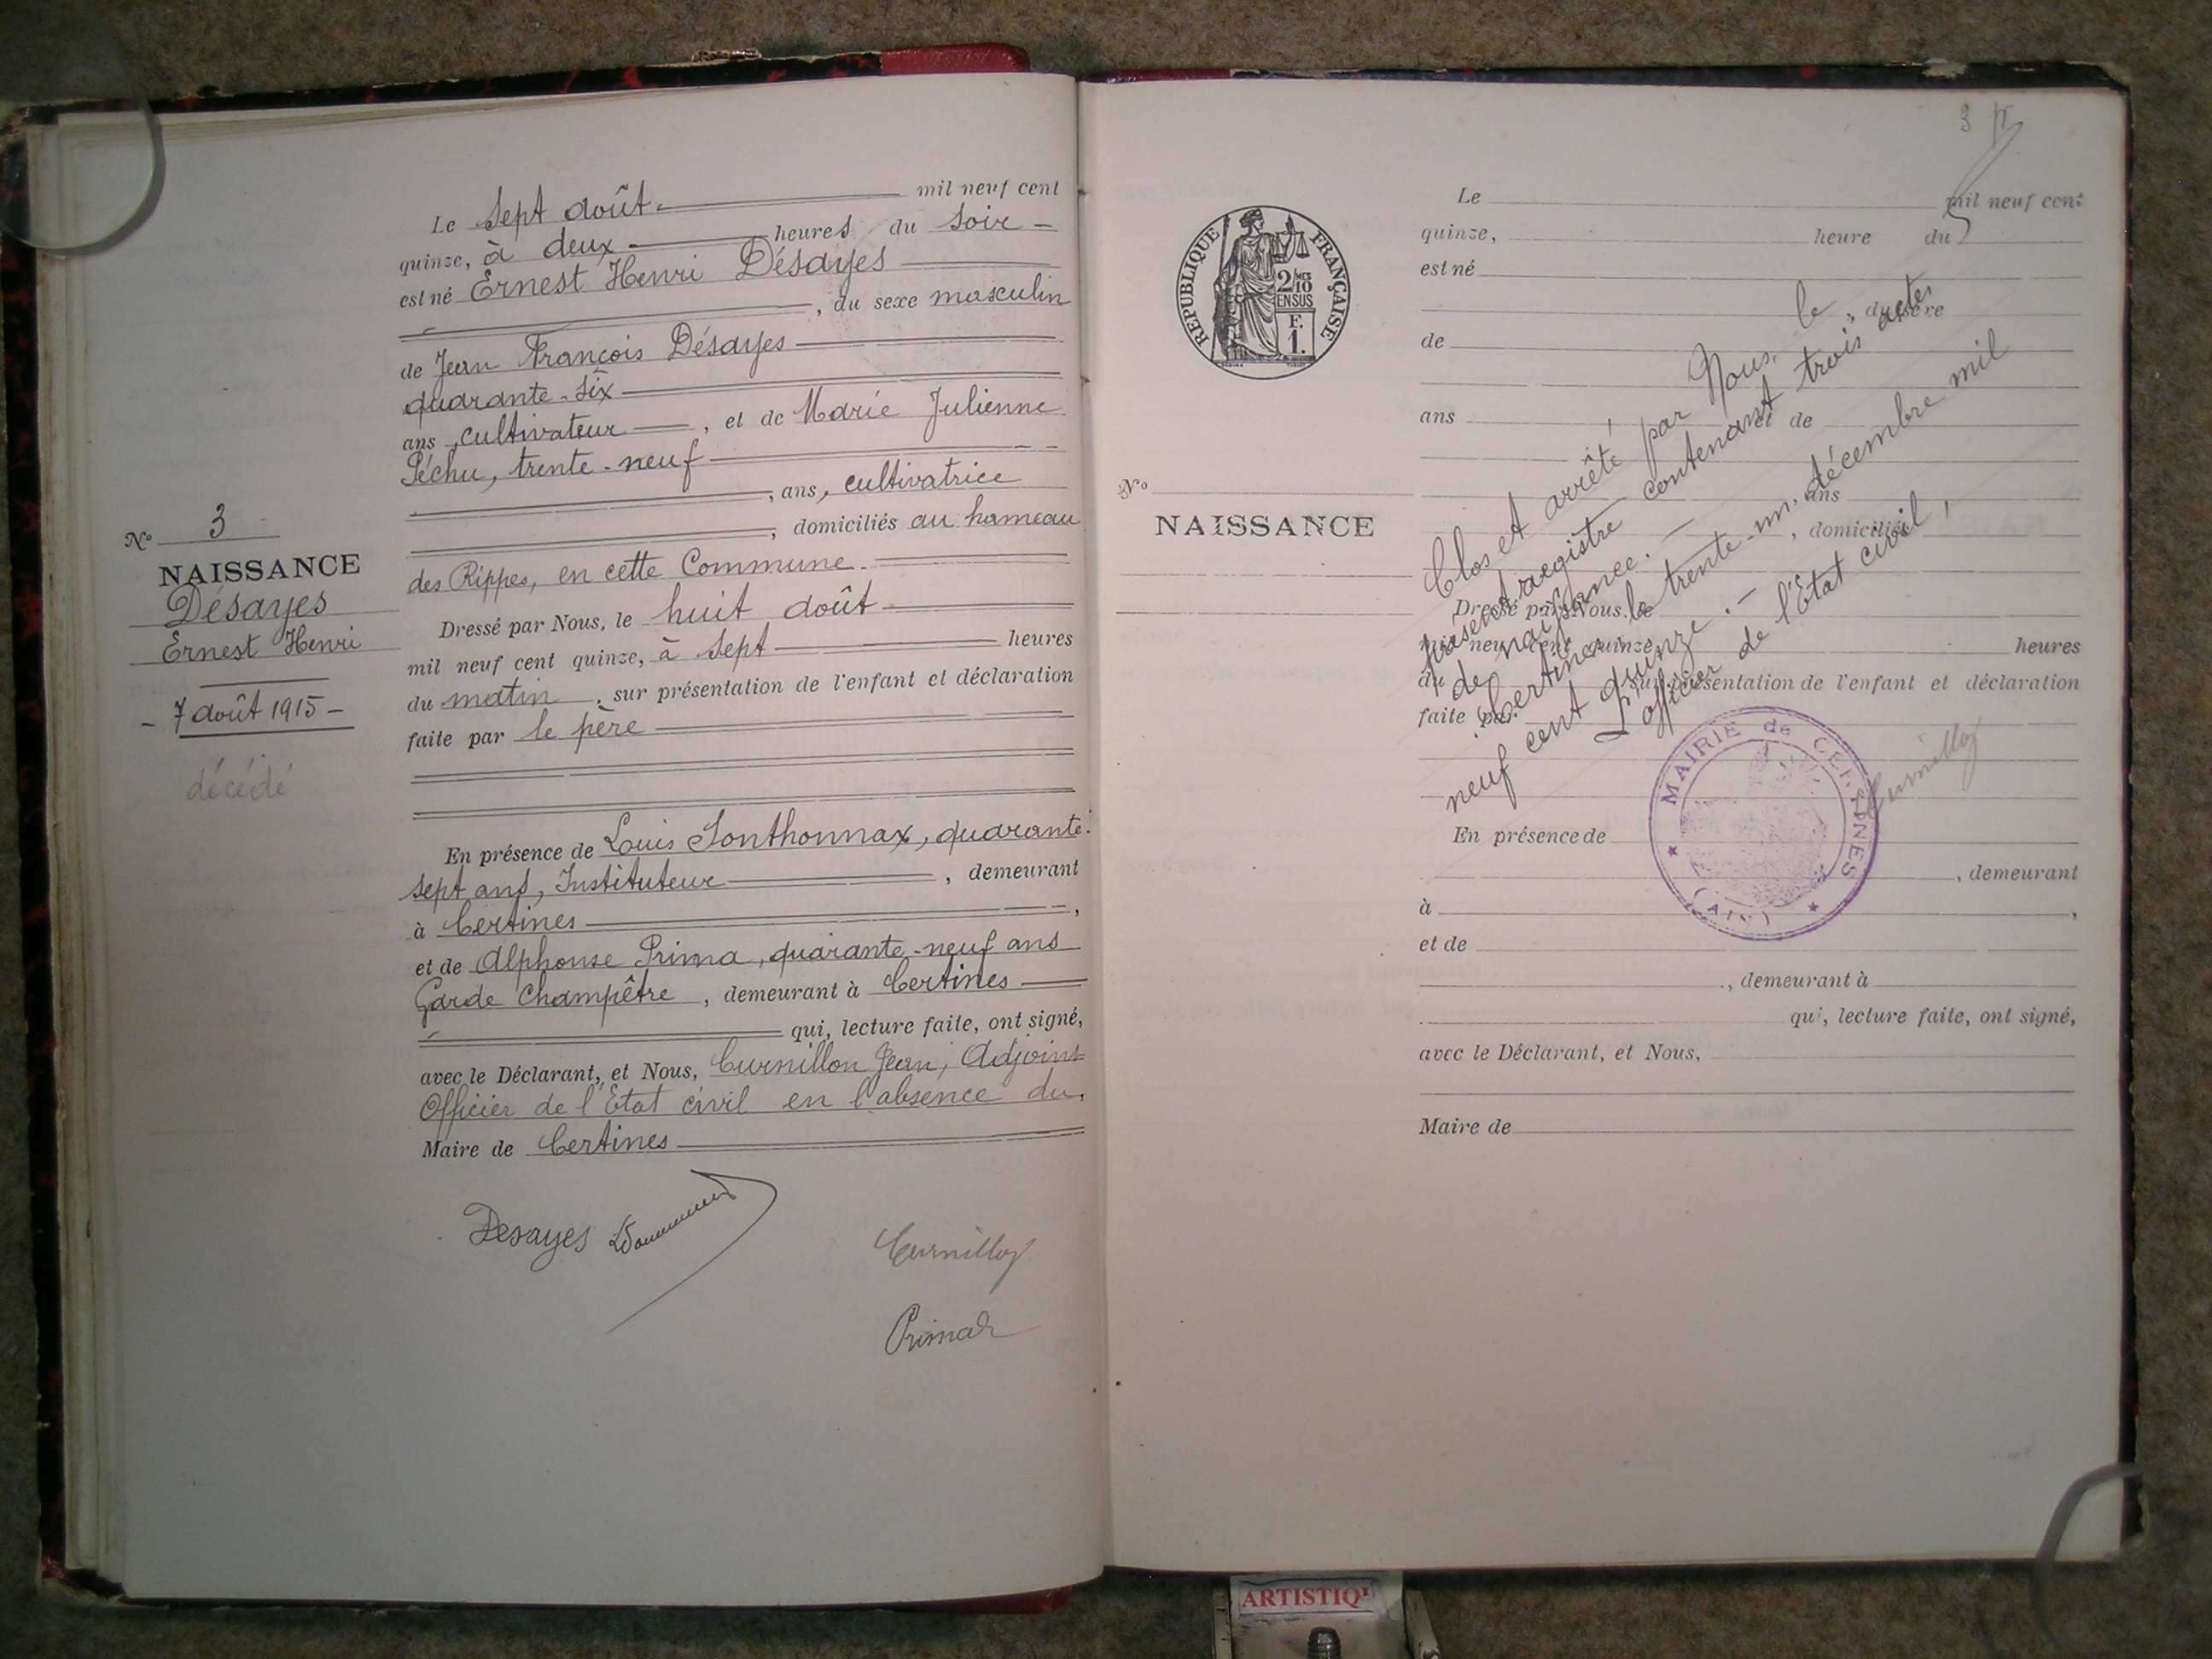 Le sept août. mil neuf cent
quinze, à deux heures du soir -
est né Ernest Henri Désayes
, du sexe masculin
de Jean François Désayes
quarante-six
ans, cultivateur, et de Marie Julienne
Péchu, trente-neuf
, ans, cultivatrice
, domiciliés au hameau
des Rippes, en cette Commune.
Dressé par Nous, le huit août
mil neuf cent quinze, à sept heures
du matin, sur présentation de l'enfant et déclaration
faite par le père
En présence de Louis Sonthonnax, quarante-
sept ans, Instituteur, demeurant
à Certines,
et de Alphonse Prima, quarante-neuf ans
Garde Champêtre, demeurant à Certines
qui, lecture faite, ont signé,
avec le Déclarant, et Nous, Curnillon Jean, Adjoint
Officier de l'Etat civil en l'absence du
Maire de Certines
No 3
NAISSANCE
Désayes
Ernest Henri
- 7 août 1915 -
décédé
Desayes
Curnillon
Prima
3
REPUBLIQUE FRANÇAISE
2/10 MES
EN SUS
F.
1.
No
NAISSANCE
Le mil neuf cent
quinze, heure du
est né
, du sexe
de
ans et de
ans
, domiciliés
Dressé par Nous, le
mil neuf cent quinze, heures
du sur présentation de l'enfant et déclaration
faite par
En présence de
, demeurant
à ,
et de
, demeurant à
qui, lecture faite, ont signé,
avec le Déclarant, et Nous,
Maire de
Clos et arrêté par Nous, le
présent registre contenant trois actes
de naissance. -
Certines, le trente-un décembre mil
neuf cent quinze. -
L'officier de l'Etat civil,
Curnillon
MAIRIE de CERTINES
(AIN)
ARTISTIQ